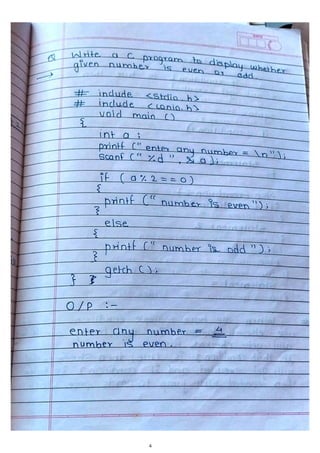 Q Write a C program to display whether
given number is even or odd.
→
# include <stdio.h>
# include <conio.h>
void main ()
{
int a ;
printf (" enter any number = \n");
scanf (" %d ", & a);
if ( a % 2 == 0 )
{
printf (" number is even ");
}
else
{
printf (" number is odd ");
}
getch ();
}
O/P :-
enter any number = 4
number is even.
4